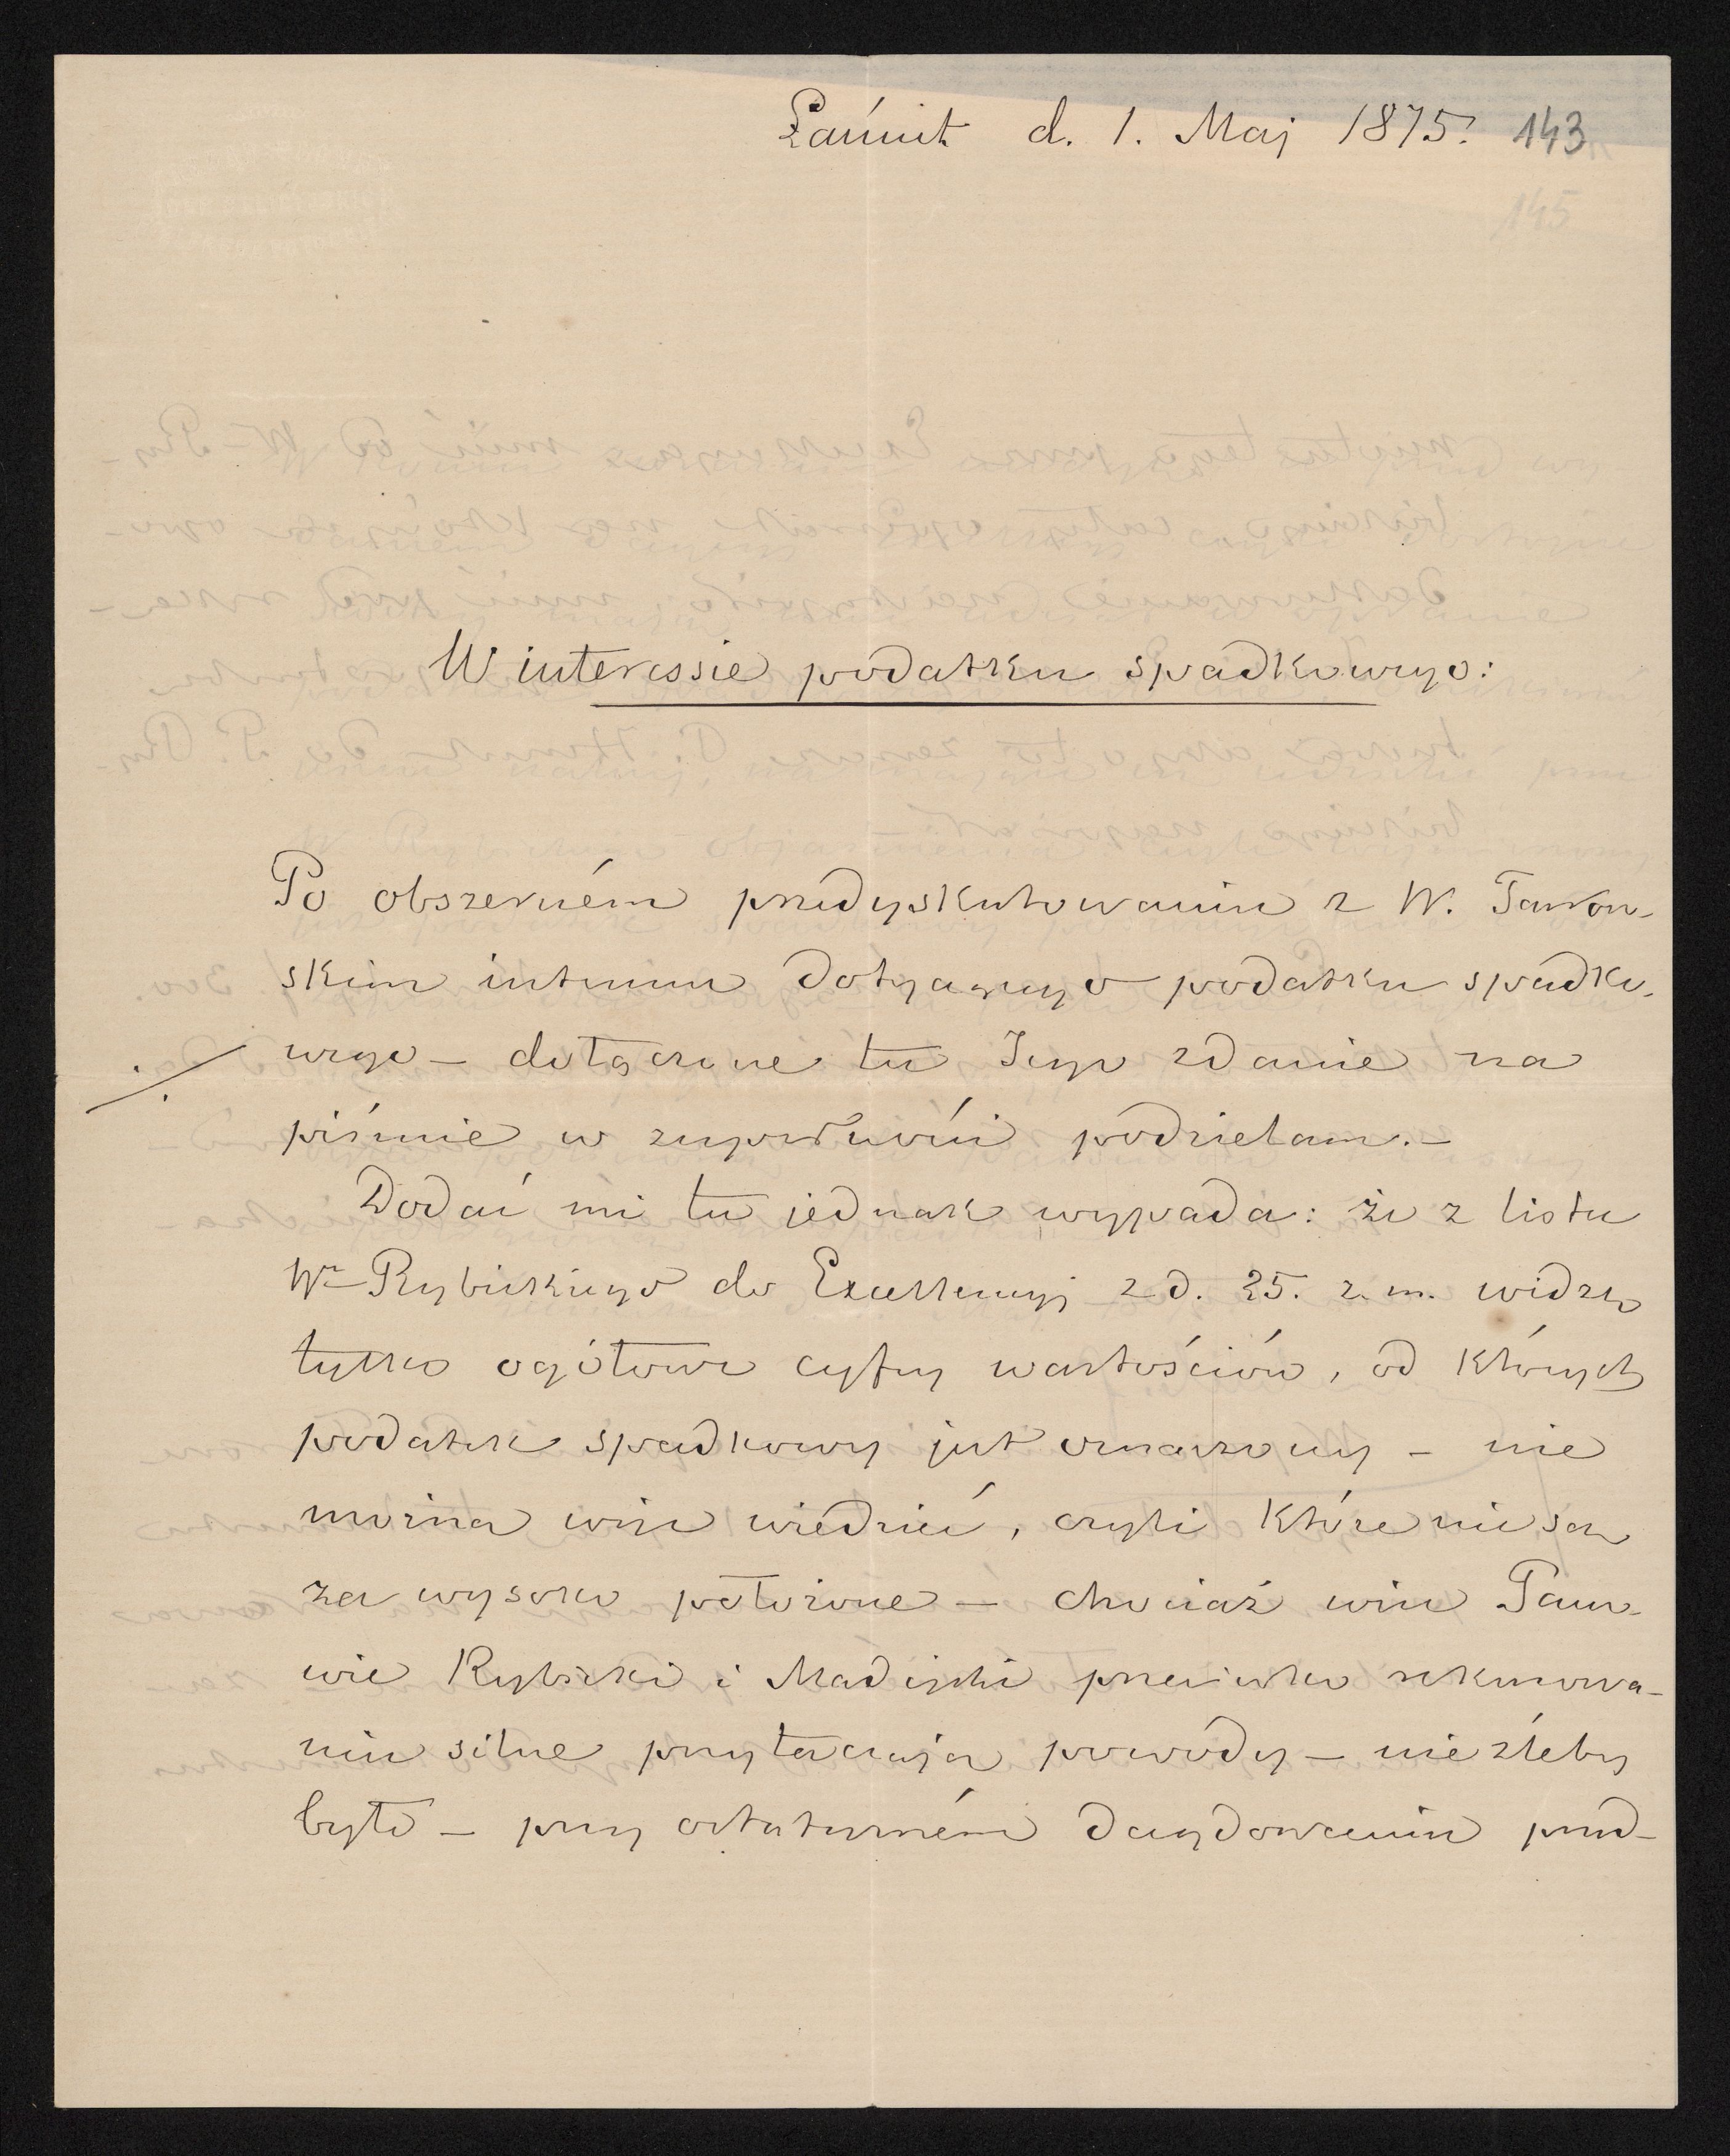 Łańcut d. 1. Maj 1875. 143
145
W interessie podatku spadkowego:
Po obszerném przedyskutowaniu z W.
skim interesu dotyczącego podatku spadko-
wego – dołączone tu Jego zdanie na
./.
piśmie w zupełności podzielam. –
Dodać mi tu jednak wypada: że z listu
Wo Rybickiego do Excellencyi z d. 25. z. m. widzę
tylko ogółowe cyfry wartościów, od których
podatek spadkowy jest oznaczony – nie
można więc wiedzieć, czyli które nie są
za wysoko położone – chociaż więc Pano-
wie Rybicki i Madejski przeciwko rekurowa-
niu silne przytaczają powody – nie źleby
było – przy ostatecznem decydowaniu przed-